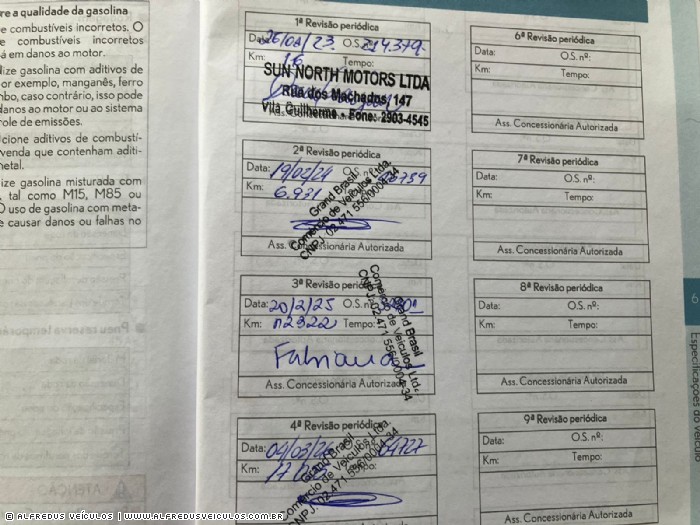 re a qualidade da gasolina
e combustíveis incorretos. O
e combustíveis incorretos
á em danos ao motor.
lize gasolina com aditivos de
or exemplo, manganês, ferro
mbo, caso contrário, isso pode
danos ao motor ou ao sistema
role de emissões.
cione aditivos de combustí-
venda que contenham aditi-
metal.
ize gasolina misturada com
, tal como M15, M85 ou
O uso de gasolina com meta-
e causar danos ou falhas no
1ª Revisão periódica
Data: O.S.
Km: 16 Tempo:
SUN NORTH MOTORS LTDA
Rua dos Machados, 147
Vila Guilherme - Fone: 2903-4545
2ª Revisão periódica
Data: 19/02/24
Km: 6.931
Grand Brasil
Comércio de Veículos Ltda.
CNPJ 02 471 556/0004-34
Ass. Concessionária Autorizada
3ª Revisão periódica
Data: 20/2/25 O.S. nº:
Km: 12322 Tempo:
Grand Brasil
Comércio de Veículos Ltda.
CNPJ: 02 471 556/0004-34
Ass. Concessionária Autorizada
4ª Revisão periódica
Data:
Km:
Grand Brasil
Comércio de Veículos Ltda.
CNPJ: 02 471 556/0004-34
6ª Revisão periódica
Data: O.S. nº:
Km: Tempo:
Ass. Concessionária Autorizada
7ª Revisão periódica
Data: O.S. nº:
Km: Tempo:
Ass. Concessionária Autorizada
8ª Revisão periódica
Data: O.S. nº:
Km: Tempo:
Ass. Concessionária Autorizada
9ª Revisão periódica
Data: O.S. nº:
Km: Tempo:
Ass. Concessionária Autorizada
6
Especificações do veículo
© ALFREDUS VEÍCULOS | WWW.ALFREDUSVEICULOS.COM.BR